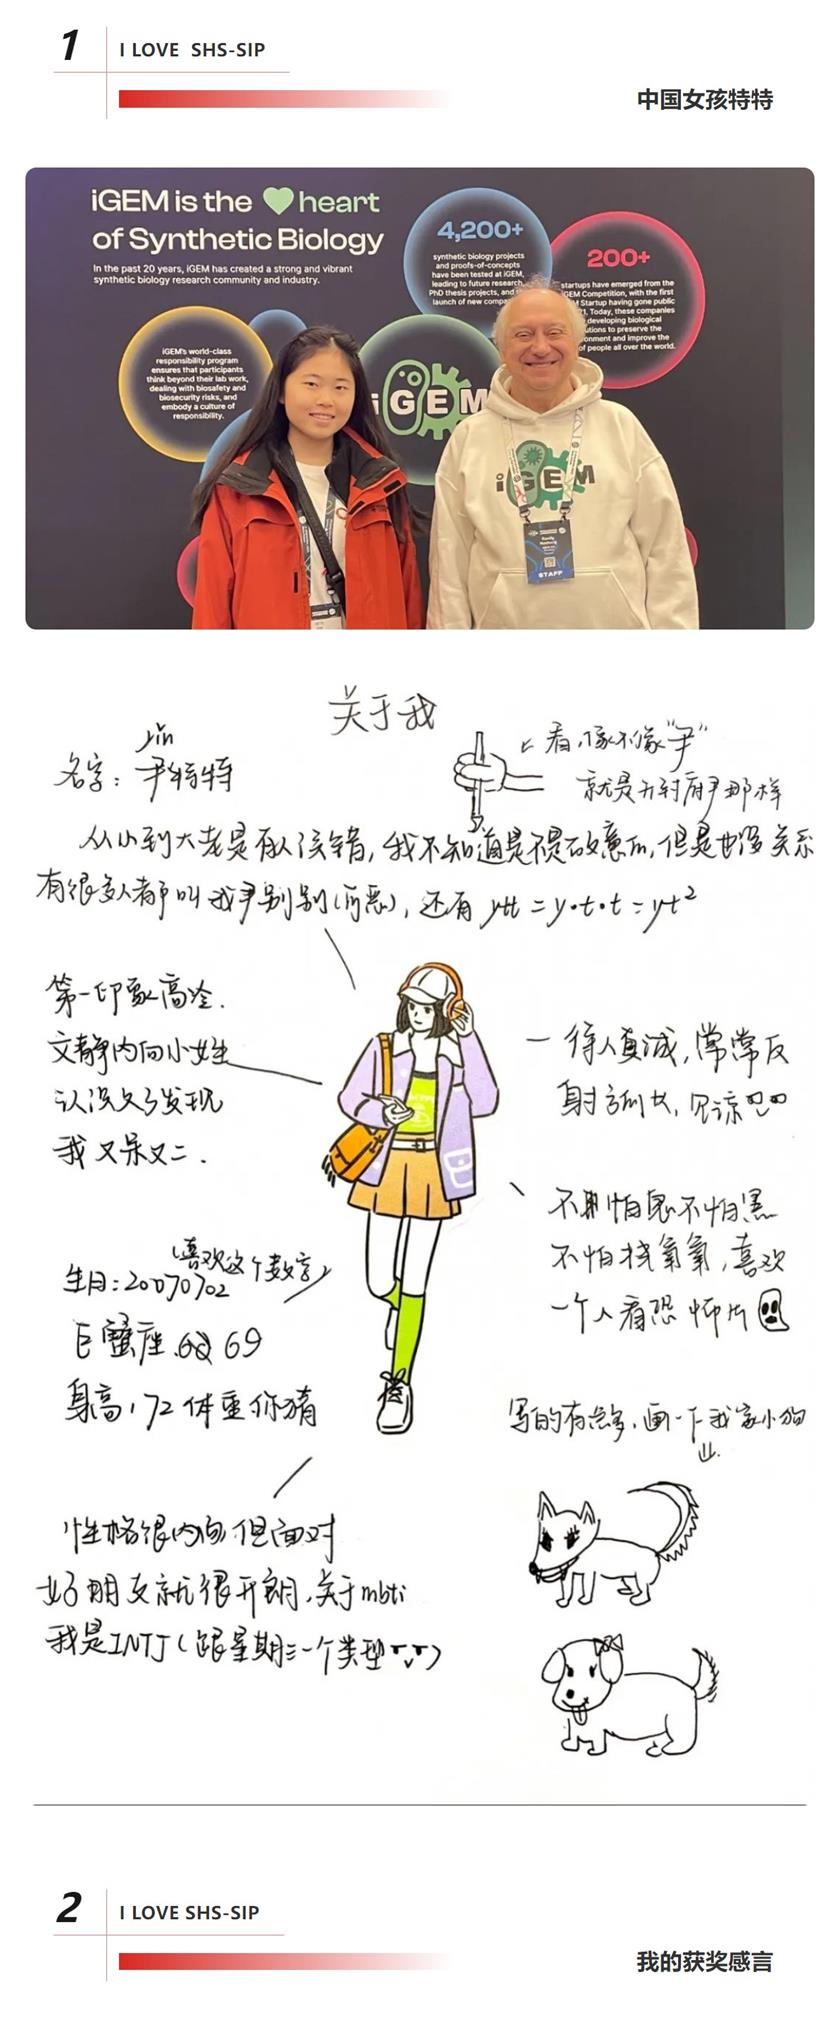 1
I LOVE SHS-SIP
中国女孩特特
iGEM is the heart
of Synthetic Biology
In the past 20 years, iGEM has created a strong and vibrant
synthetic biology research community and industry.
4,200+
synthetic biology projects
and proofs-of-concepts
have been tested at iGEM,
leading to future research,
PhD thesis projects, and
launch of new
200+
startups have emerged from the
iGEM Competition, with the first
Startup having gone public
Today, these companies
developing biological
to preserve the
and improve the
of people all over the world.
iGEM's world-class
responsibility program
ensures that participants
think beyond their lab work,
dealing with biosafety and
biosecurity risks, and
embody a culture of
responsibility.
iGEM
iGEM
STAFF
关于我
yin
名字：尹特特
看，像不像“尹”
就是开封府尹那样
从小到大老是有人读错，我不知道是不是故意的，但是也没关系
有很多人都叫我尹别别（可恶），还有 ytt = y·t·t = yt²
第一印象高冷.
文静内向小女生
认识久了发现
我又呆又二.
待人真诚，常常反
见谅
(喜欢这个数字)
生日：20070702
巨蟹座 69
身高172 体重你猜
不怕鬼不怕黑
不怕找氧氧，喜欢
一个人看恐怖片
写的有点多，画一下我家小狗
性格很内向但面对
好朋友就很开朗，关于mbti
我是INTJ（跟星期三一个类型）
2
I LOVE SHS-SIP
我的获奖感言